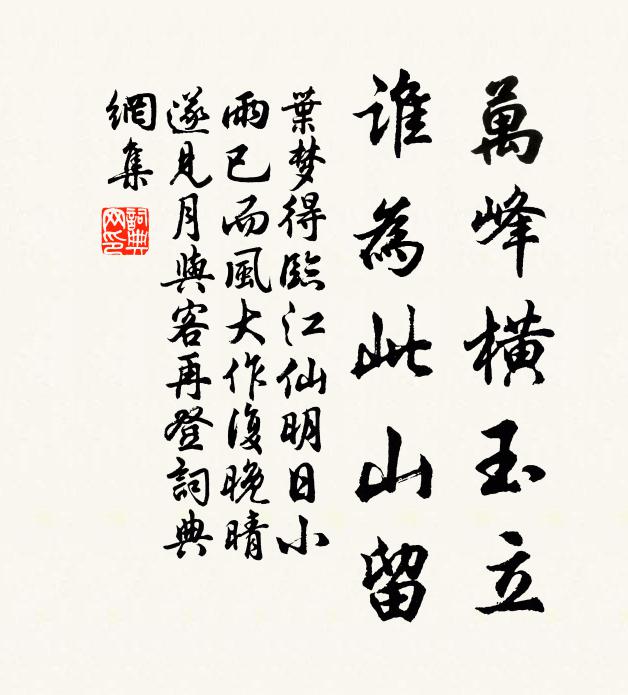 萬峰橫玉立
誰為此山留
葉梦得臨江仙明日小
雨已而風大作復晚晴
遂見月與客再登詞典
網集
詞典网印